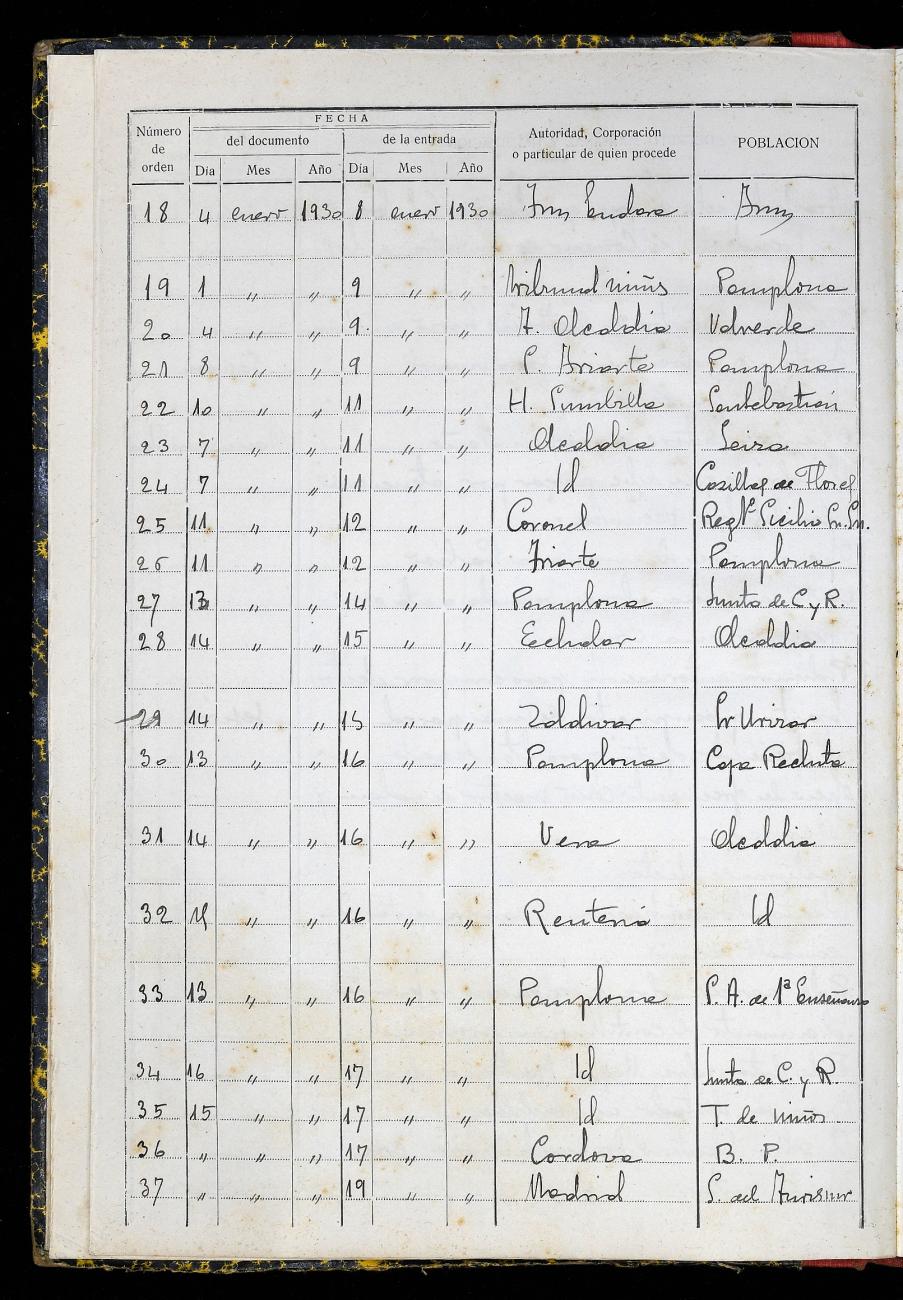 Número de orden
FECHA
del documento
de la entrada
Autoridad, Corporación o particular de quien procede
POBLACION
Día Mes Año Día Mes Año
18 4 enero 1930 8 enero 1930
19 1 〃 〃 9 〃 〃 tribunal niños Pamplona
20 4 〃 〃 9. 〃 〃 Alcaldia Valverde
21 8 〃 〃 9 〃 〃 P. Iriarte Pamplona
22 10 〃 〃 11 〃 〃 H. Sumbilla
23 7 〃 〃 11 〃 〃 Alcaldia Leiza
24 7 〃 〃 11 〃 〃 Id
25 11 〃 〃 12 〃 〃 Coronel Regto Sicilia
26 11 〃 〃 12 〃 〃 Iriarte Pamplona
27 13 〃 〃 14 〃 〃 Pamplona Junta de C y R.
28 14 〃 〃 15 〃 〃 Echalar Alcaldia
29 14 〃 〃 15 〃 〃 Zaldivar
30 13 〃 〃 16 〃 〃 Pamplona Caja Recluta
31 14 〃 〃 16 〃 〃 Vera Alcaldia
32 14 〃 〃 16 〃 〃 Renteria Id
33 13 〃 〃 16 〃 〃 Pamplona P. A. de 1ª Enseñanza
34 16 〃 〃 17 〃 〃 Id Junta de C. y R.
35 15 〃 〃 17 〃 〃 Id T. de niños
36 〃 〃 〃 17 〃 〃 Cordova B. P.
37 〃 〃 〃 19 〃 〃 Madrid